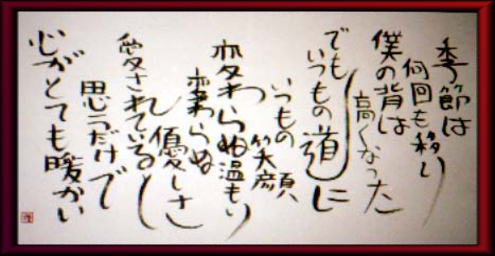 季節は
何回も移り
僕の背は
高くなった
でも
いつもの道に
いつもの
笑顔、
変わらぬ温もり
変わらぬ
優しさ
愛されている
思うだけで
心がとても暖かい